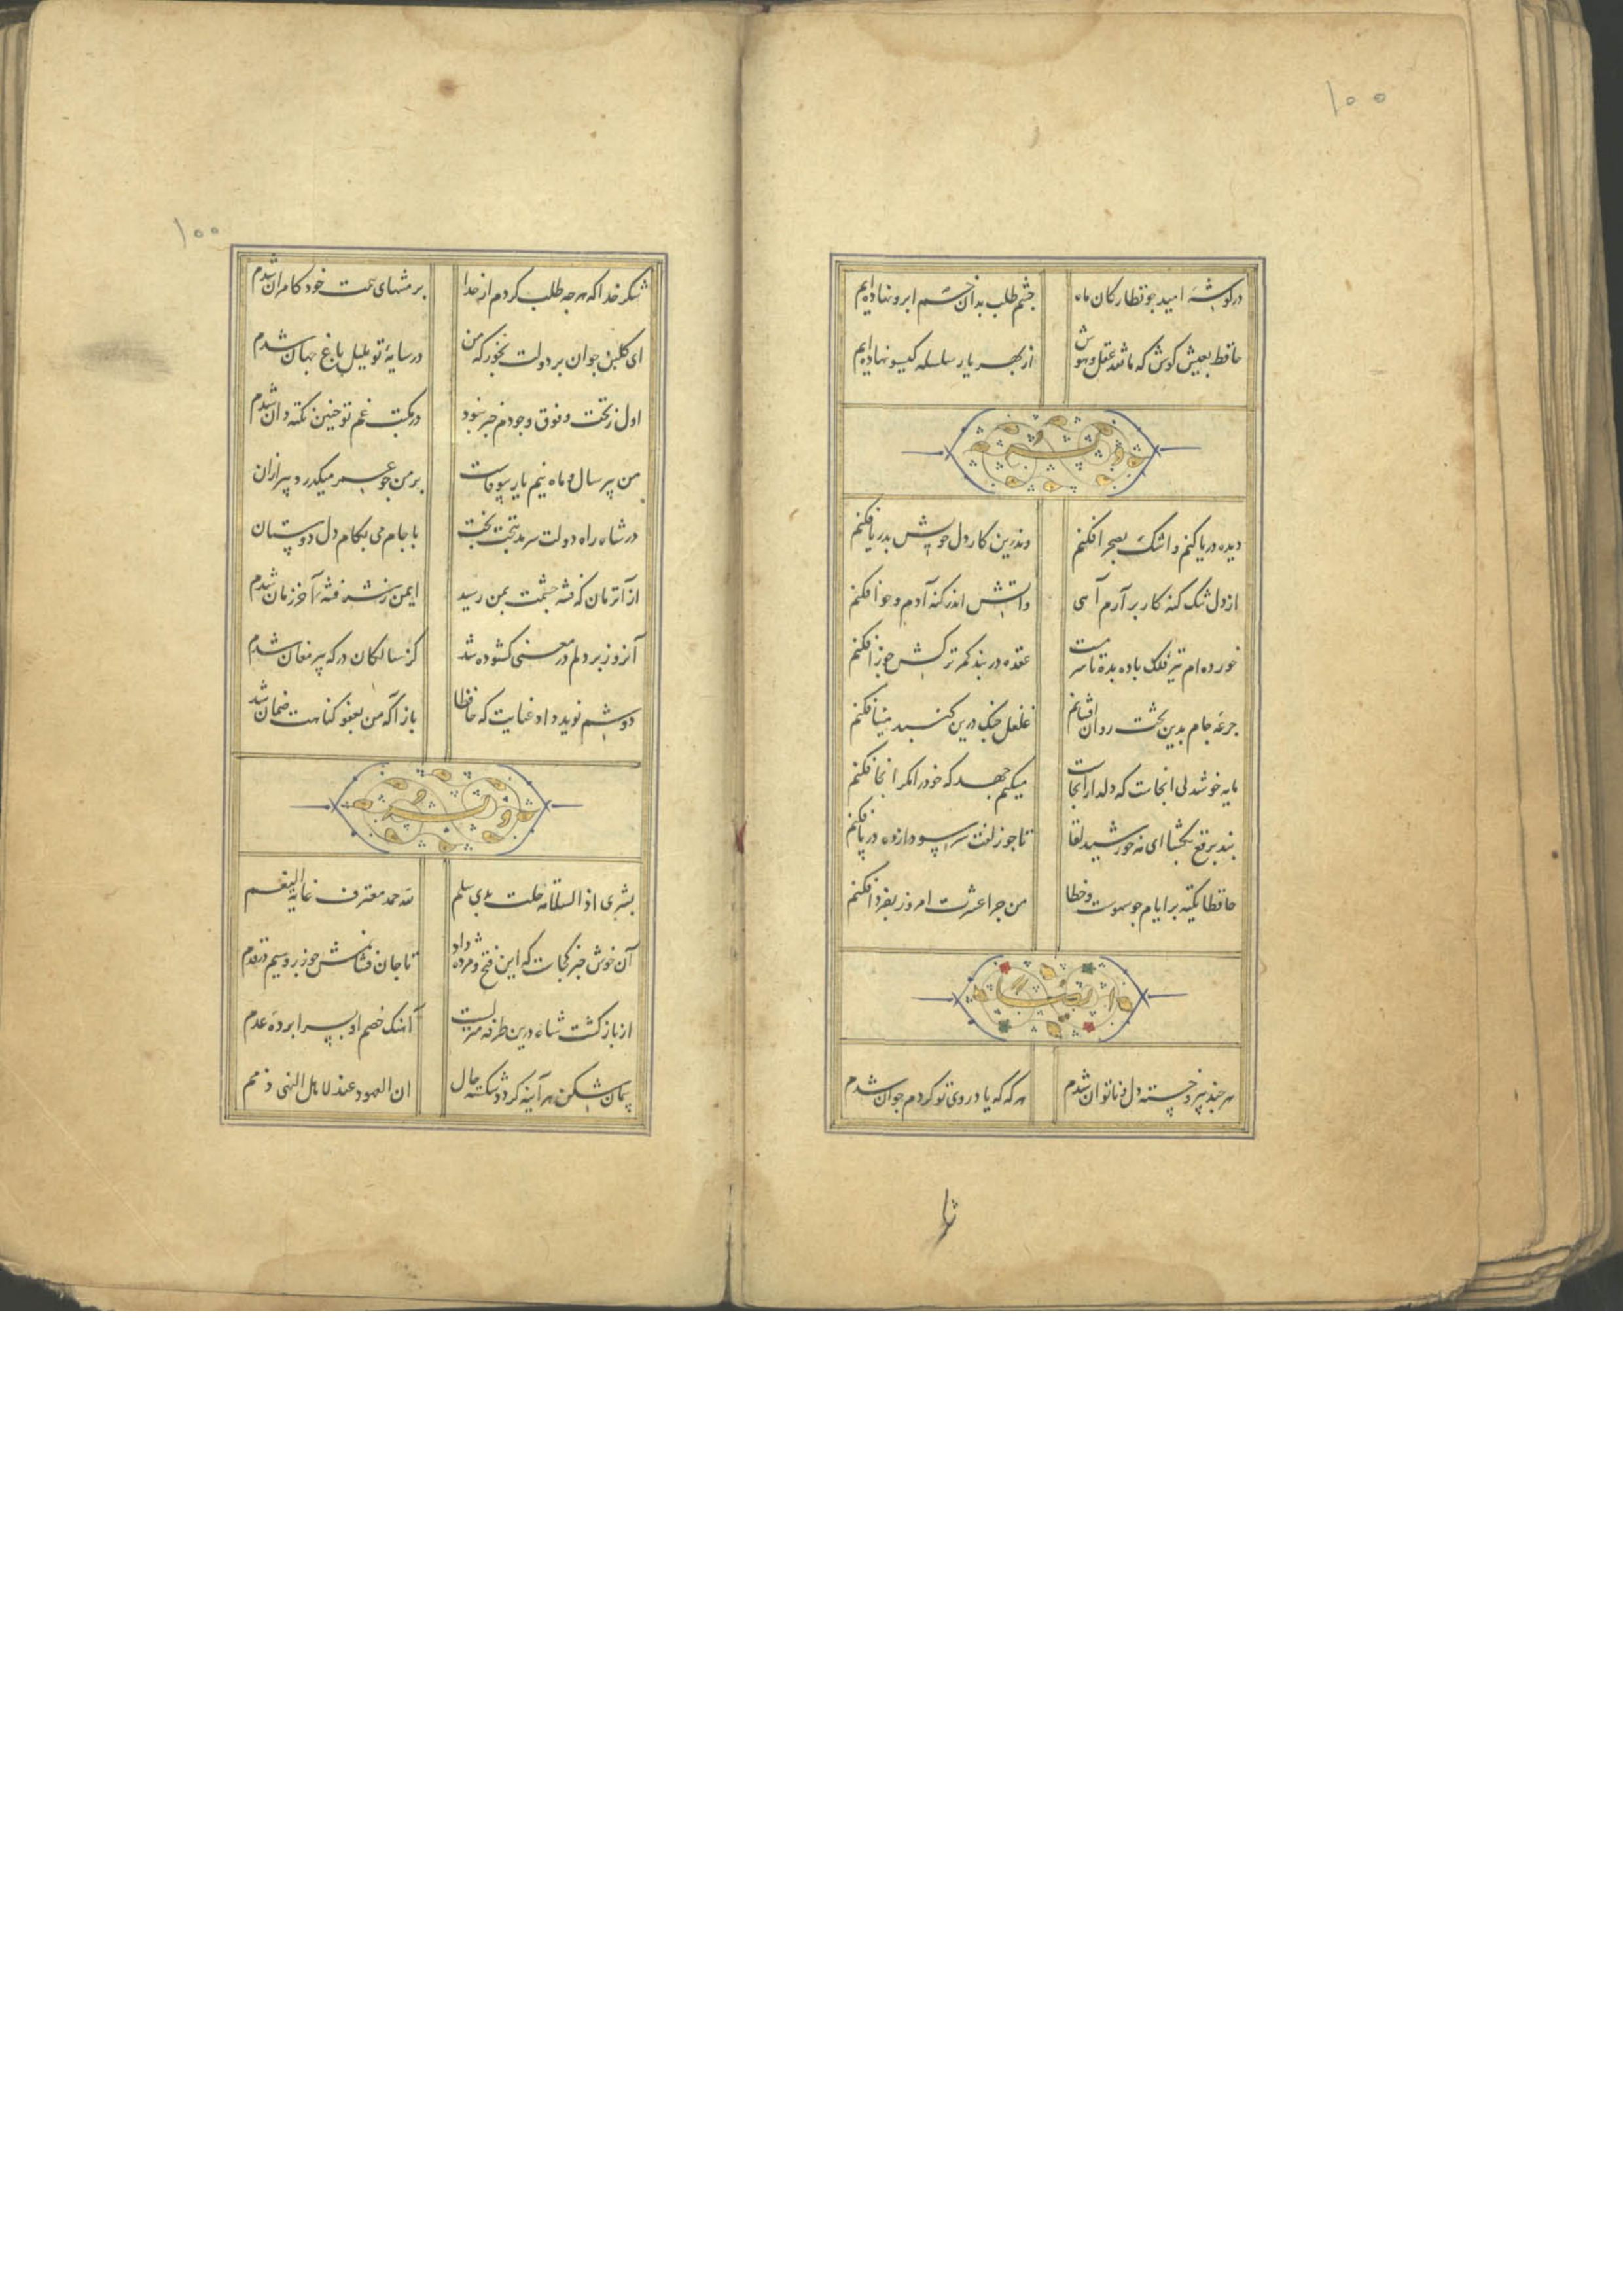 ۱۰۰
در گوشه امید چو نظارگان ماه
چشم طلب بدان خم ابرو نهاده‌ایم
حافظ بعیش کوش که ما نقد عقل و هوش
از بهر یار سلسله گیسو نهاده‌ایم
وله
دیده دریا کنم و اشک بصحرا فکنم
وندرین کار دل خویش بدریا فکنم
از دل تنک کنه کار برآرم آهی
واتش اندر کنه آدم و حوا فکنم
خورده‌ام تیر فلک باده بده تا سرمست
عقده در بند کمر ترکش جوزا فکنم
جرعه جام بدین تخت روان افشانم
غلغل چنک درین کنبد مینا فکنم
مایه خوشدلی انجاست که دلدار انجاست
میکنم جهد که خود را مکر انجا فکنم
بند برقع بکشا ای مه خورشید لقا
تا چو زلفت سر سودازده در پا فکنم
حافظا تکیه بر ایام چو سهوست و خطا
من چرا عشرت امروز بفردا فکنم
ایضا
هر چند پیر و خسته دل و ناتوان شدم
هر که که یاد روی تو کردم جوان شدم
۱۰۰
شکر خدا که هر چه طلب کردم از خدا
بر منتهای همت خود کامران شدم
ای کلبن جوان بر دولت بخور که من
در سایه تو بلبل باغ جهان شدم
اول ز تحت و فوق وجودم خبر نبود
در مکتب غم تو چنین نکته دان شدم
من پیر سال و ماه نیم یار بیوفاست
بر من چو عمر میکذرد پیر ازان
در شاه راه دولت سرمد بتخت بخت
با جام می بکام دل دوستان
از آنزمان که فتنه چشمت بمن رسید
ایمن ز شر فتنه آخر زمان شدم
آنروز بر دلم در معنی کشوده شد
کز سالکان درکه پیر مغان شدم
دوشم نوید داد عنایت که حافظا
بازآ که من بعفو کناهت ضمان شدم
وله
بشری اذ السلامة حلت بذی سلم
لله حمد معترف غایة النعم
آن خوش خبر کجاست که این فتح و مژده داد
تا جان فشانمش چو زر و سیم در قدم
از بازکشت شاه درین طرفه منزلست
آهنک خصم او بسراپرده عدم
پیمان شکن هر آینه کردد شکسته حال
ان العهود عند اهل النهی ذمم